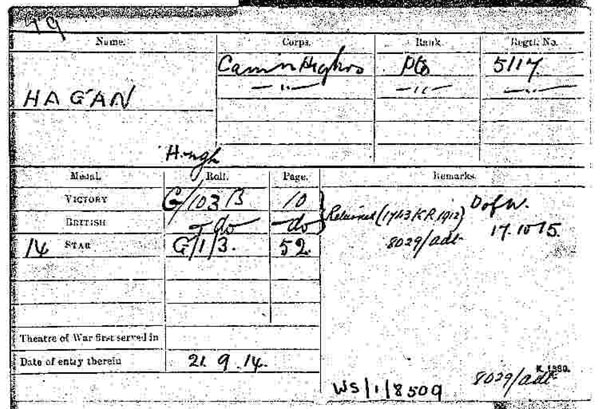 79
Name. Corps. Rank. Regtl. No.
HAGAN Camn Highrs Pte 5117
—"— —"— —"—
Hugh
Medal. Roll. Page. Remarks.
VICTORY G/103 B 10 Returned (1743 KR 1912) D of W.
BRITISH — do — do 8029/adt 17.10.15.
14 STAR G/1/3. 52.
Theatre of War first served in
Date of entry therein 21.9.14.
K. 1380.
WS/1/8509 8029/adt